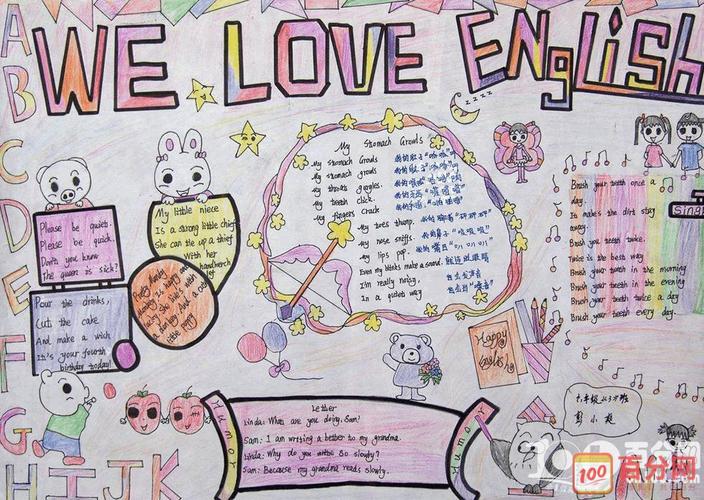 WE LOVE ENglish
A
B
C
D
E
F
G
H I J K
zzzz
Please be quiet.
Please be quick.
Don't you know
The queen is sick?
My little niece
Is a strong little chief
She can tie up a thief
With her
handkerch
Pour the drinks,
Cut the cake
And make a wich
It's your fourth
birthday today!
My Stomach Growls
My stomach Growls
My stomach growls
My throat gurgles.
My teeth click.
My fingers crack
My toes thump.
My nose sniffs.
My lips pop.
Even my blinks make a sound.
I'm really noisy,
In a quiet way
Brush your teeth once a
day.
It makes the dirt stay
away.
Brush you teeth twice.
Twice is the best way
Brush your teeth in the morning
Brush your teeth in the evening
Brush your teeth twice a day.
Brush your teeth every day.
Sing
Happy
English
Humor
Letter
Linda: What are you doing, Sam?
Sam: I am writing a letter to my grandma.
Linda: Why do you write so slowly?
Sam: Because my grandma reads slowly.
Humor
100
百分网